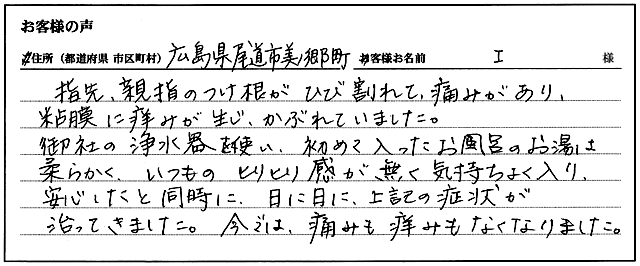 お客様の声
ご住所（都道府県 市区町村） 広島県尾道市美ノ郷町 お客様お名前 I 様
指先、親指のつけ根がひび割れて、痛みがあり、
粘膜に痒みが生じ、かぶれていました。
御社の浄水器を使い、初めて入ったお風呂のお湯は
柔らかく、いつものヒリヒリ感が無く気持ちよく入り、
安心したと同時に、日に日に、上記の症状が
治ってきました。今では、痛みも痒みもなくなりました。